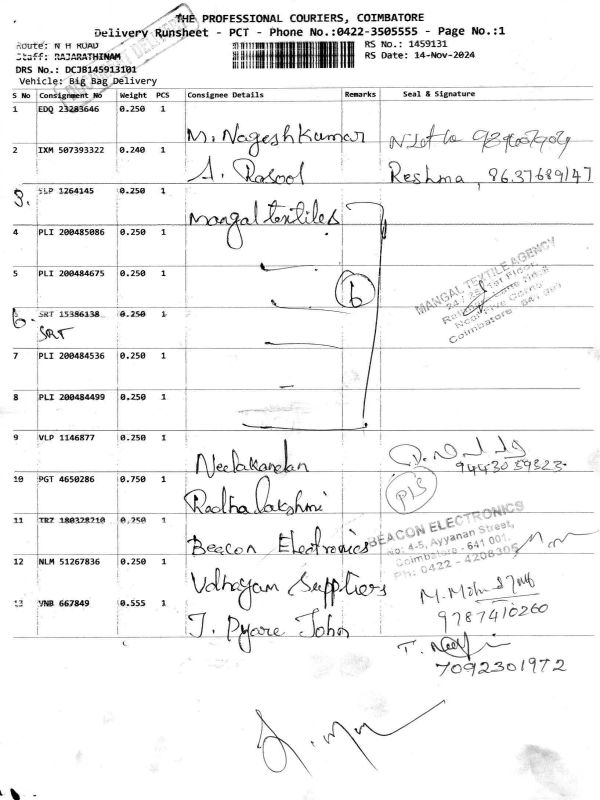 THE PROFESSIONAL COURIERS, COIMBATORE
Delivery Runsheet - PCT - Phone No.:0422-3505555 - Page No.:1
Route: N H ROAD
RS No.: 1459131
Staff: RAJARATHINAM
RS Date: 14-Nov-2024
DRS No.: DCJB145913101
Vehicle: Big Bag Delivery
S No Consignment No Weight PCS Consignee Details Remarks Seal & Signature
1 EDQ 23283646 0.250 1
M. Nagesh Kumar
2 IXM 507393322 0.240 1
A. Rasool Reshma, 8637689147
3. SLP 1264145 0.250 1
Mangal textiles
4 PLI 200485086 0.250 1
MANGAL TEXTILE AGENCY
5 PLI 200484675 0.250 1
6
Coimbatore
6. SRT 15386138 0.250 1
SRT
7 PLI 200484536 0.250 1
8 PLI 200484499 0.250 1
9 VLP 1146877 0.250 1
Neelakandan
9443059323
10 PGT 4650286 0.750 1
Radha lakshmi
PLS
11 TRZ 180328210 0.250 1
BEACON ELECTRONICS
No: 4-5, Ayyanan Street,
Coimbatore - 641 001.
Ph: 0422 - 4208305
Beacon Electronics
12 NLM 51267836 0.250 1
Udhayam Suppliers
9787410260
13 VNB 667849 0.555 1
J. Pyare John
7092301972